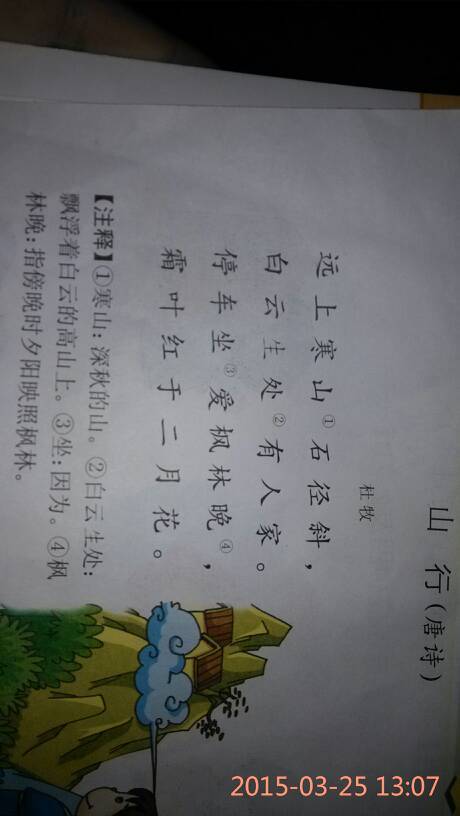 山行(唐诗)
杜牧
远上寒山①石径斜，
白云生处②有人家。
停车坐③爱枫林晚④，
霜叶红于二月花。
【注释】①寒山：深秋的山。②白云生处：
飘浮着白云的高山上。③坐：因为。④枫
林晚：指傍晚时夕阳映照枫林。
2015-03-25 13:07